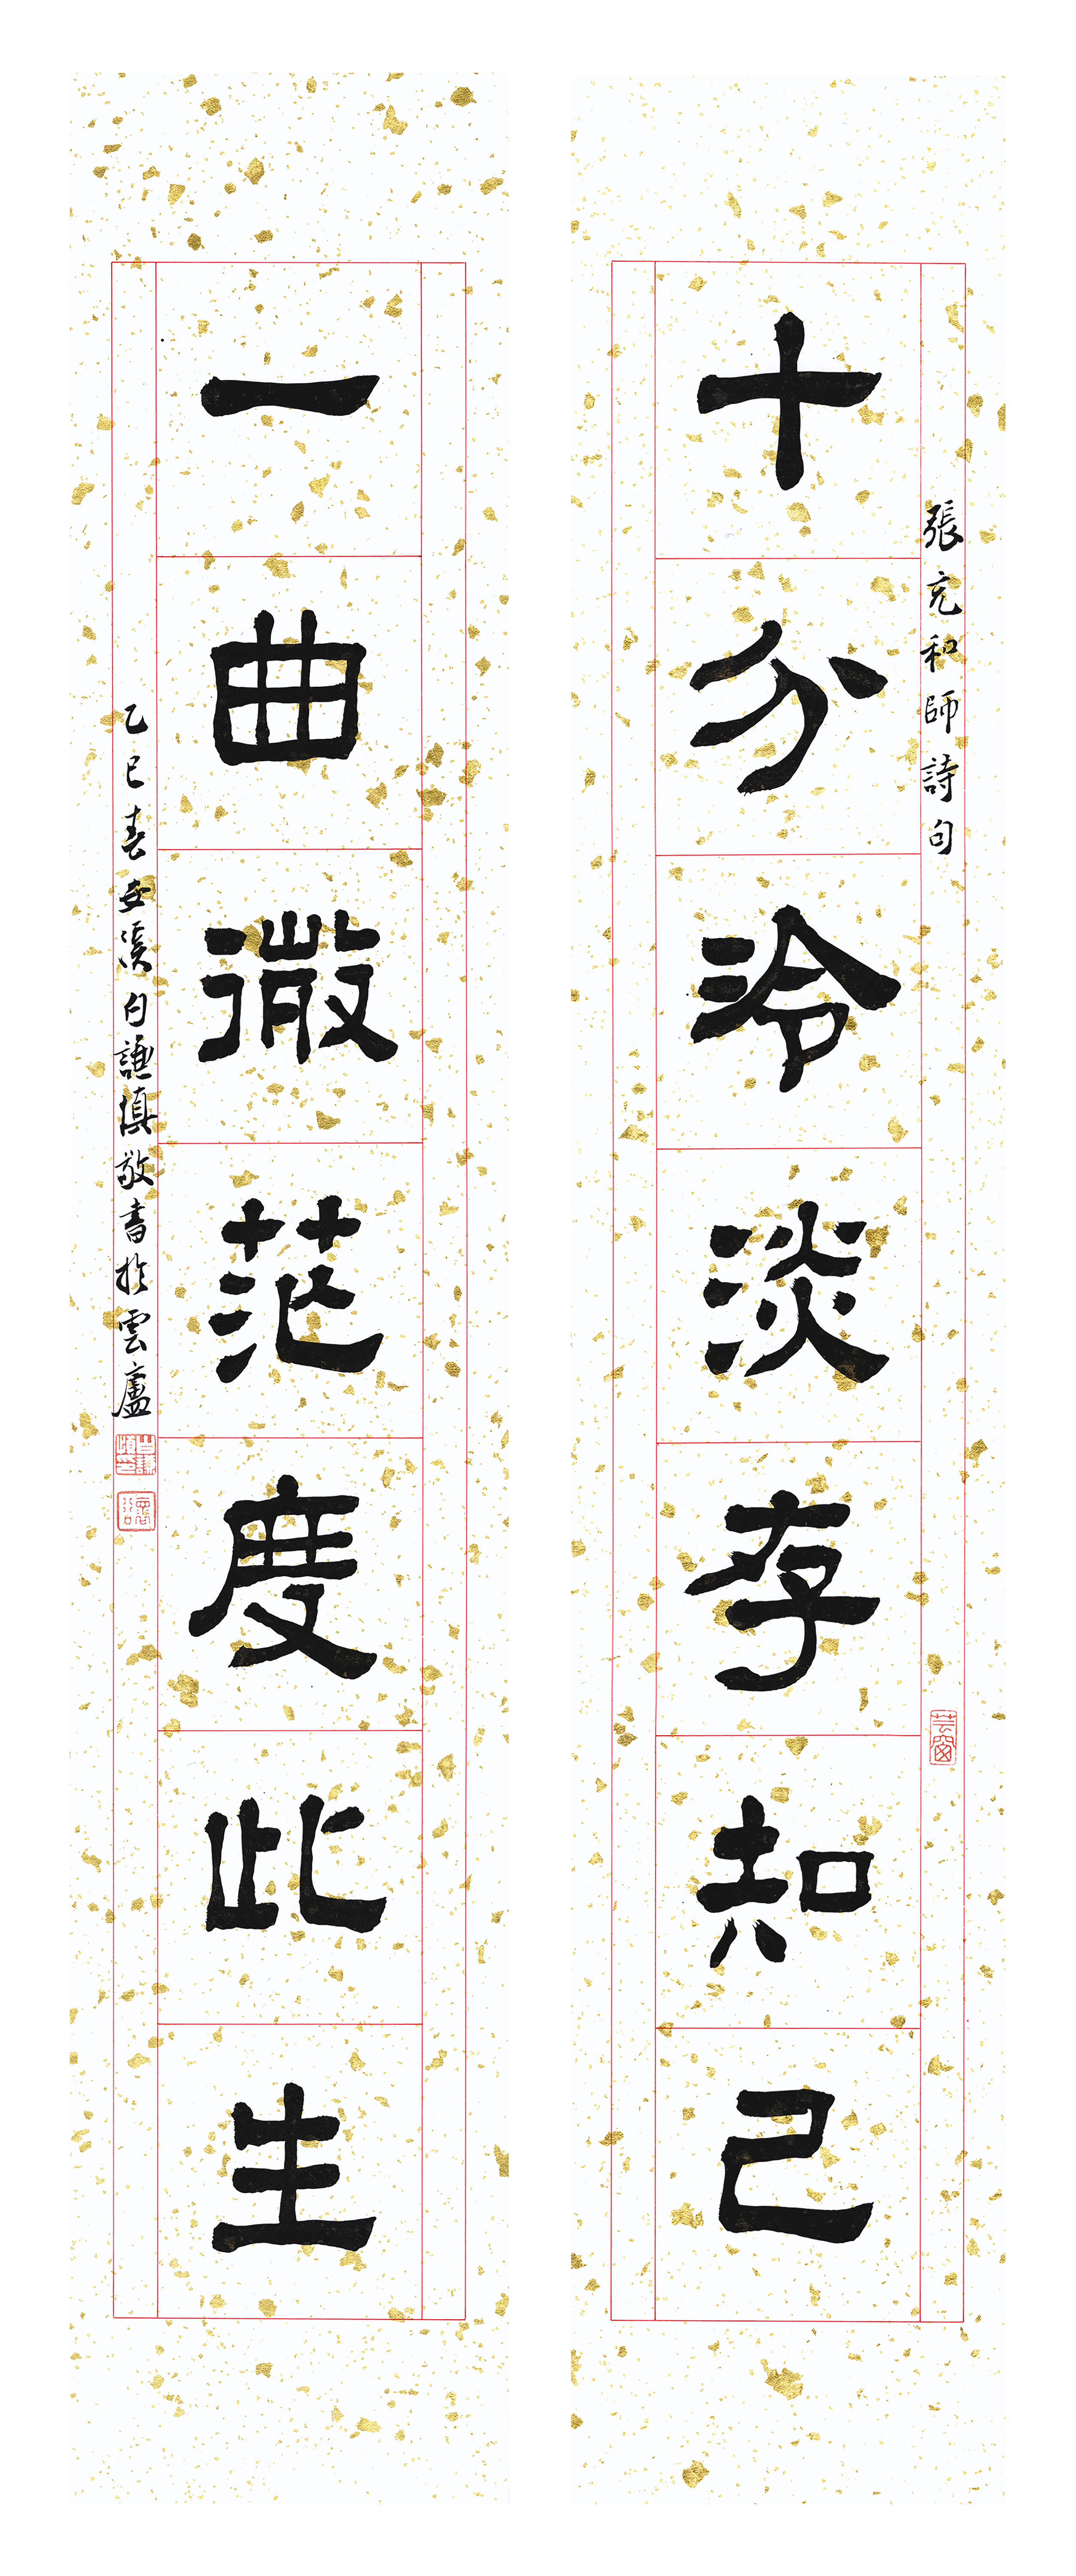 張充和師詩句
十分冷淡存知己
芸窗
一曲微茫度此生
乙巳春安溪白謙慎敬書於雲廬